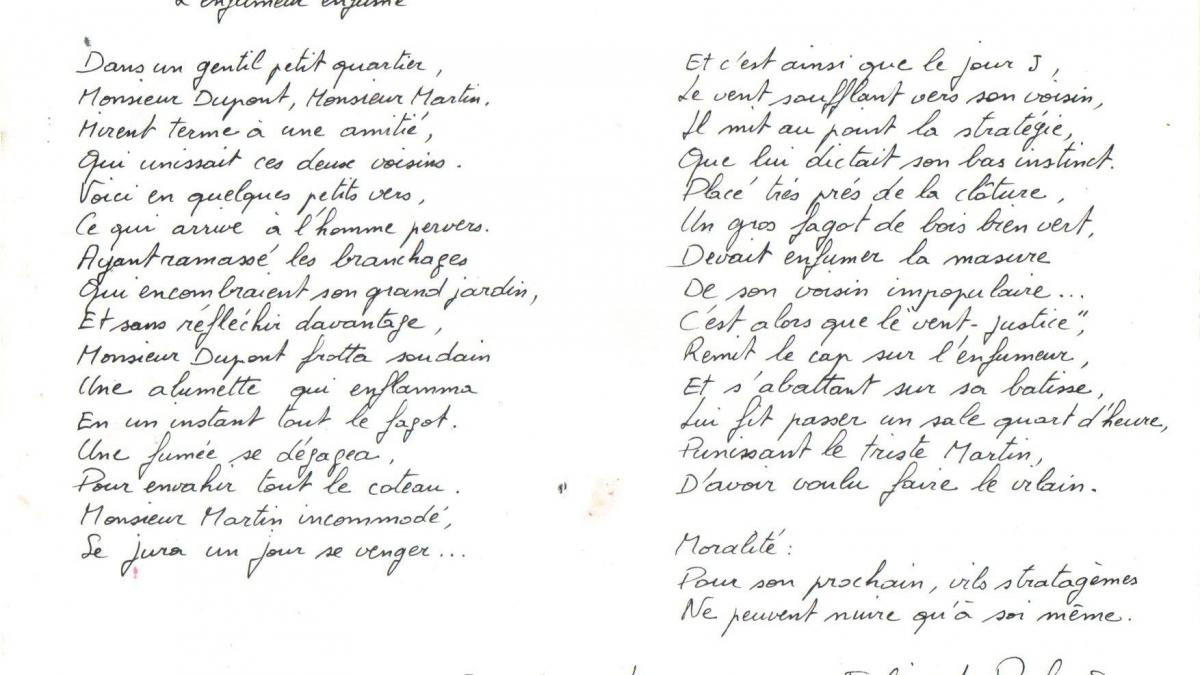 L'enfumeur enfumé
Dans un gentil petit quartier,
Monsieur Dupont, Monsieur Martin.
Mirent terme à une amitié,
Qui unissait ces deux voisins.
Voici en quelques petits vers,
Ce qui arrive à l'homme pervers.
Ayant ramassé les branchages
Qui encombraient son grand jardin,
Et sans réfléchir davantage,
Monsieur Dupont frotta soudain
Une alumette qui enflamma
En un instant tout le fagot.
Une fumée se dégagea,
Pour envahir tout le coteau.
Monsieur Martin incommodé,
Se jura un jour se venger...
Et c'est ainsi que le jour J,
Le vent soufflant vers son voisin,
Il mit au point la stratégie,
Que lui dictait son bas instinct.
Placé très près de la clôture,
Un gros fagot de bois bien vert,
Devait enfumer la masure
De son voisin impopulaire...
C'est alors que le "vent-justice",
Remit le cap sur l'enfumeur,
Et s'abattant sur sa batisse,
Lui fit passer un sale quart d'heure,
Punissant le triste Martin,
D'avoir voulu faire le vilain.
Moralité:
Pour son prochain, vils stratagèmes
Ne peuvent nuire qu'à soi même.